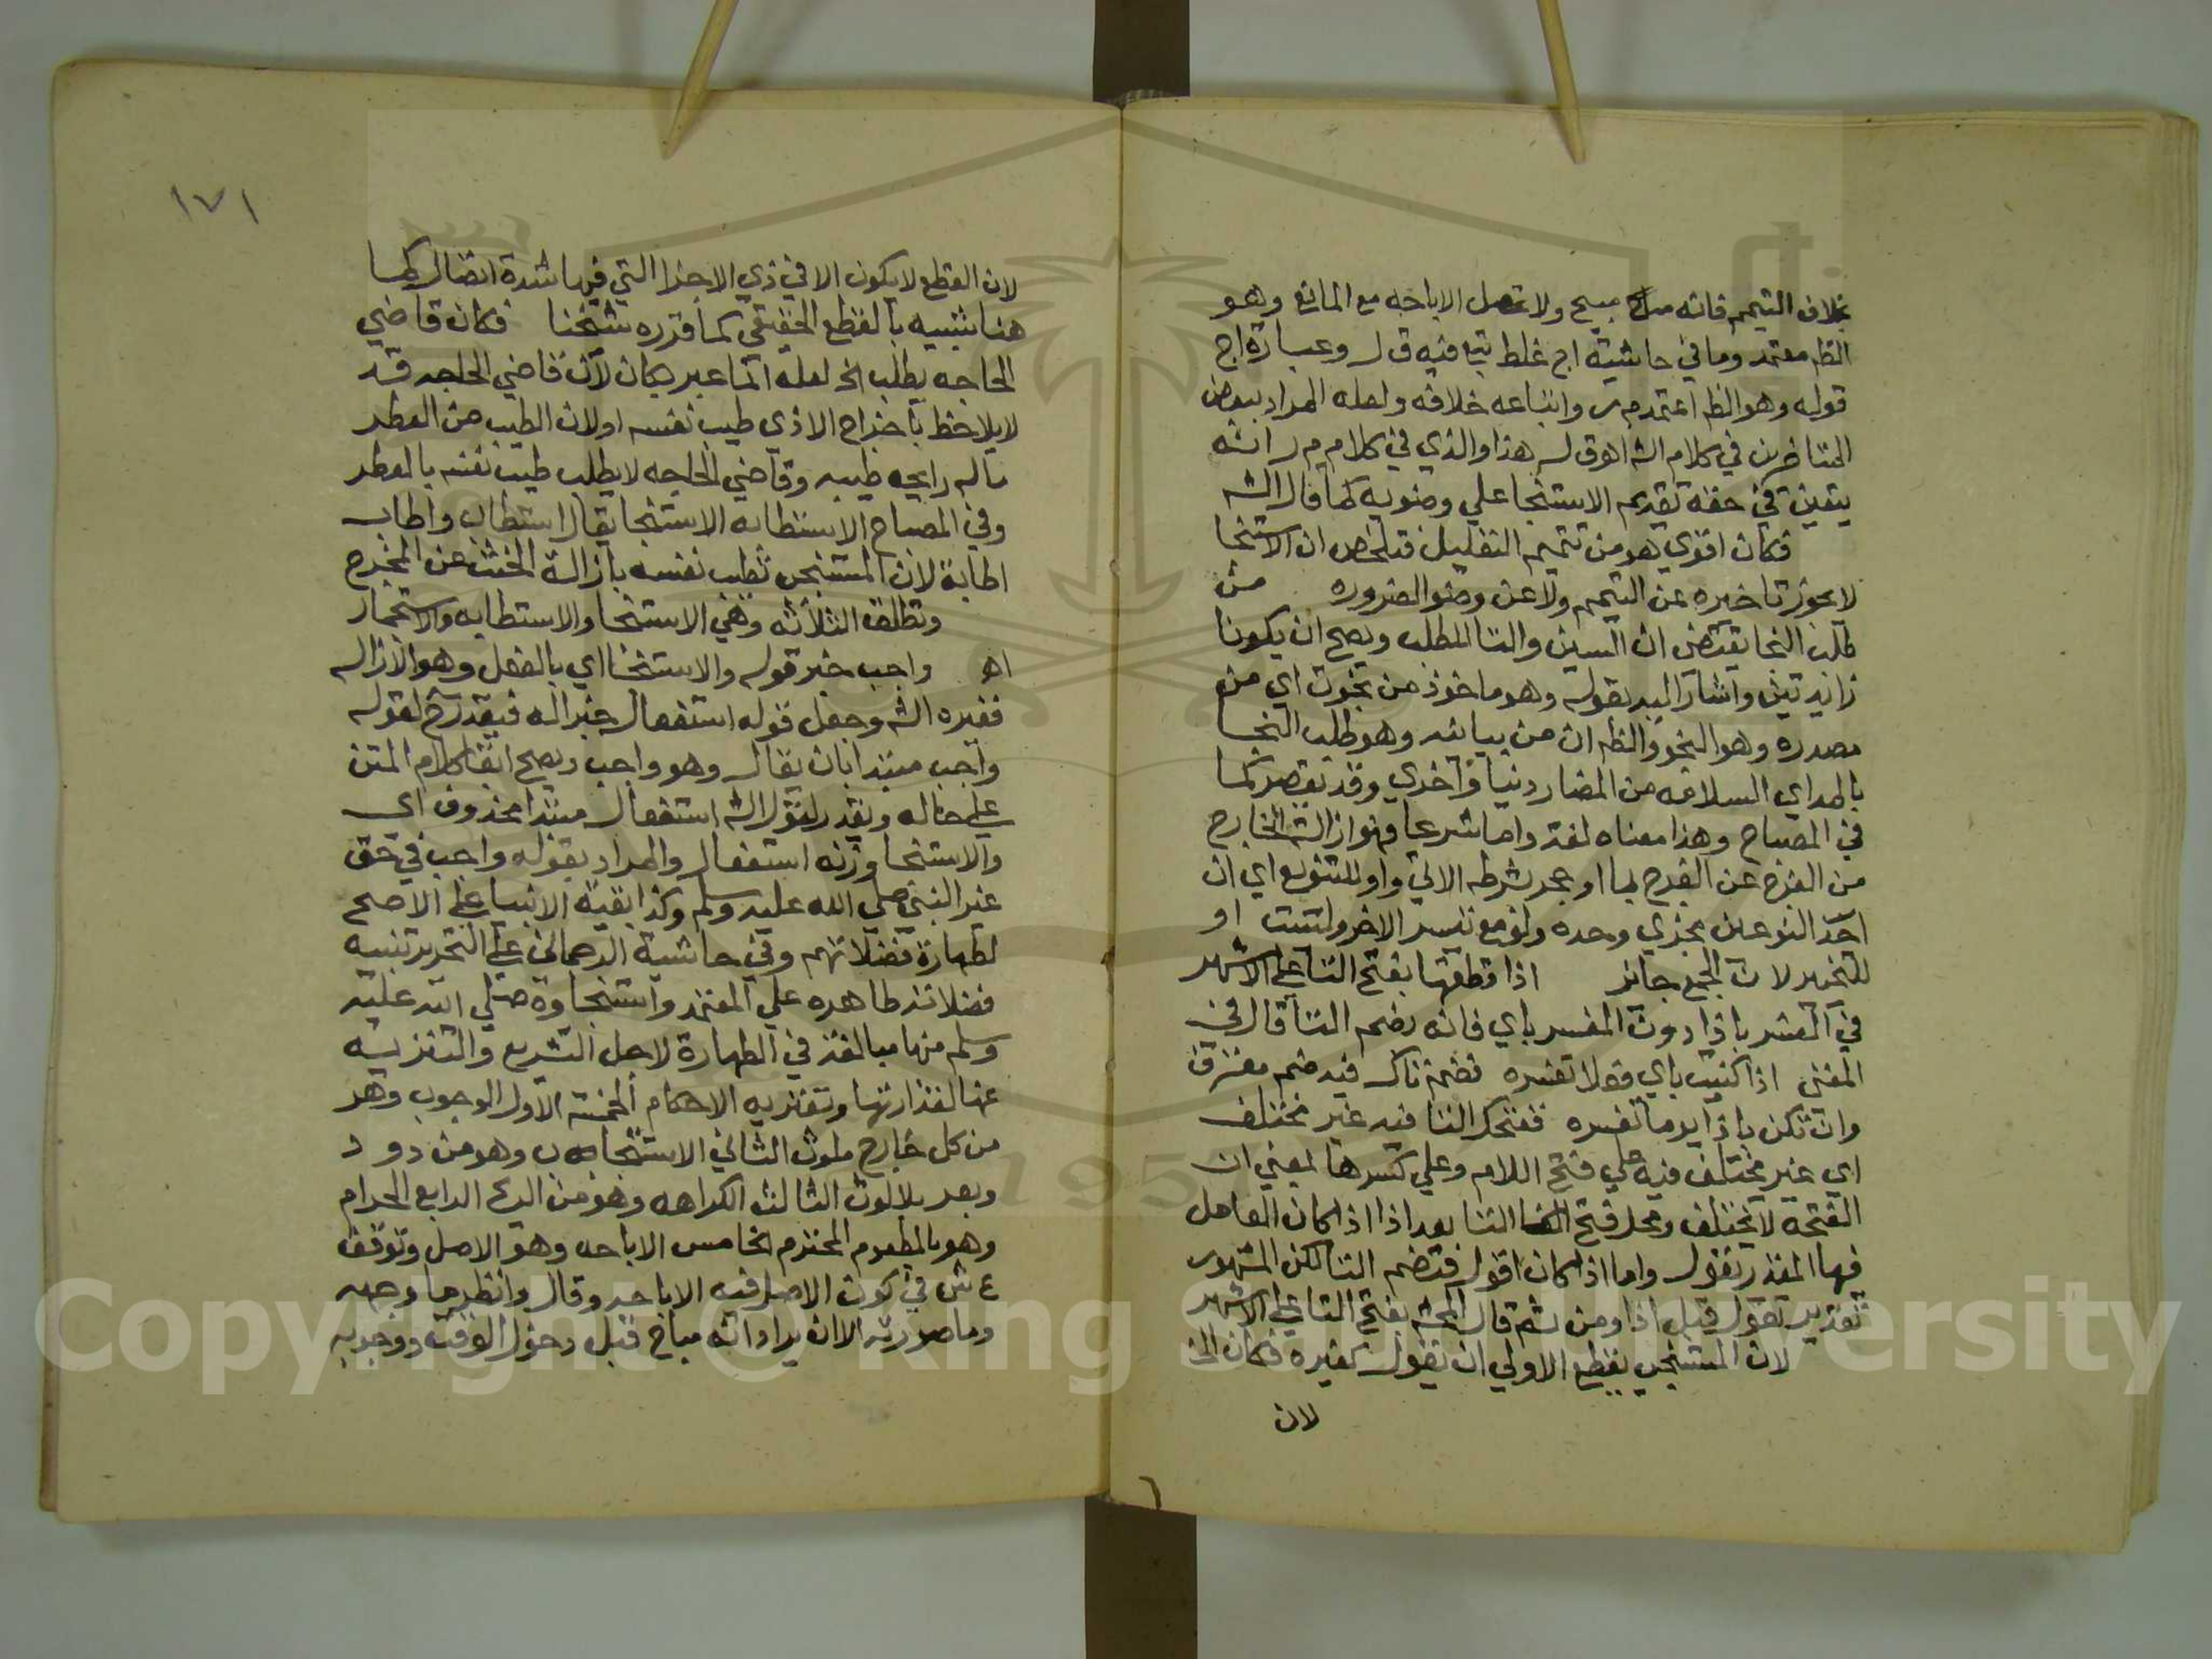 بخلاف التيمم فانه مبيح ولا تحصل الاباحه مع المانع وهو
الظ معتمد وما في حاشية اج غلط تبع فيه ق ل وعبارة اج
قوله وهو الظ اعتمد م ر واتباعه خلافه ولعله المراد ببعض
المتاخرين في كلام الش اهـ ق ل هذا والذي في كلام م ر انه
يتعين في حقه تقديم الاستنجا علي وضويه كما قال الش
فكان اقوي هو من تتميم التعليل فتلخص ان الاستنجا
لا يجوز تاخيره عن التيمم ولا عن وضو الضروره من
طلب النجا يقتضي ان السين والتا للطلب ويصح ان يكونا
زايدتين واشار اليه بقوله وهو ماخوذ من نجوت اي من
مصدره وهو النجو والظ ان من بيانيه وهو طلب النجا
بالمد اي السلامه من المضار دنيا واخري وقد تقصر كما
في المصباح وهذا معناه لغة واما شرعا فهو ازالة الخارج
من الفرج عن الفرج بما او حجر بشرطه الاتي واو للتنويع اي ان
احد النوعين يجزي وحده ولو مع تيسر الاخر وليست او
للتخيير لان الجمع جائز اذا قطعتها بفتح التا علي الاشهر
في المفسر باذا دون المفسر باي فانه بضم التا قال في
المغني اذا كنيت باي فعلا تفسره فضم تاك فيه ضم معترف
وان تكن باذا يوما تفسره ففتحك التا فيه غير مختلف
اي غير مختلف فيه علي فتح اللام وعلي كسرها لمعني ان
الفتحة لا تختلف ومحل فتح التا بعد اذا اذا كان العامل
فيها المقدر تقول واما اذا كان اقول فتضم التا لكن المشهور
تقدير تقول قبل اذا ومن ثم قال المحش بفتح التا علي الاشهر
لان المستنجي يقطع الاولي ان يقول كغيره فكان الخ
لان
١٧١
لان القطع لا يكون الا في ذي الاجزا التي فيها شدة اتصال كما
هنا شبيه بالقطع الحقيقي كما قرره شيخنا فكان قاضي
الحاجه يطلب الخ لعله انما عبر بكان لان قاضي الحاجه قد
لا يلاحظ باخراج الاذي طيب نفسه او لان الطيب من العطر
ماله رايحه طيبه وقاضي الحاجه لا يطلب طيب نفسه بالعطر
وفي المصباح الاستطابه الاستنجا يقال استطاب واطاب
اطابة لان المستنجي تطيب نفسه بازالة الخبث عن المخرج
وتطلق الثلاثه وهي الاستنجا والاستطابه والاستجمار
اهـ واجب خبر قوله والاستنجا اي بالفعل وهو الازاله
فغيره الش وجعل قوله استفعال خبرا له فيقدر ح لقوله
واجب مبتدا بان يقال وهو واجب ويصح ابقا كلام المتن
علي حاله ويقدر لقول الش استفعال مبتدا محذوف اي
والاستنجا وزنه استفعال والمراد بقوله واجب في حق
غير النبي صلي الله عليه وسلم وكذا بقية الانبيا علي الاصح
لطهارة فضلاتهم وفي حاشية الرحماني علي التحرير تنبيه
فضلاته طاهره علي المعتمد واستنجاوه صلي الله عليه
وسلم منها مبالغة في الطهارة لاجل التشريع والتنزيه
عنها لقذارتها وتعتريه الاحكام الخمسة الاول الوجوب وهو
من كل خارج ملوث الثاني الاستحباب وهو من دود
وبعر بلا لوث الثالث الكراهه وهو من الريح الرابع الحرام
وهو بالمطعوم المحترم الخامس الاباحه وهو الاصل وتوقف
ع ش في كون الاصل فيه الاباحه وقال وانظر ما وجهه
وما صورته الا ان يراد انه مباح قبل دخول الوقت ووجوبه